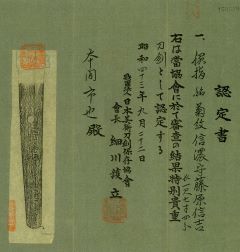 認定書
一、脇指 銘 菊紋信濃守藤原信吉
右は当協会に於て審査の結果特別貴重
刀剣として認定する
昭和四十三年九月二十二日
財団法人日本美術刀剣保存協会
會長 細川護立
本間市也殿